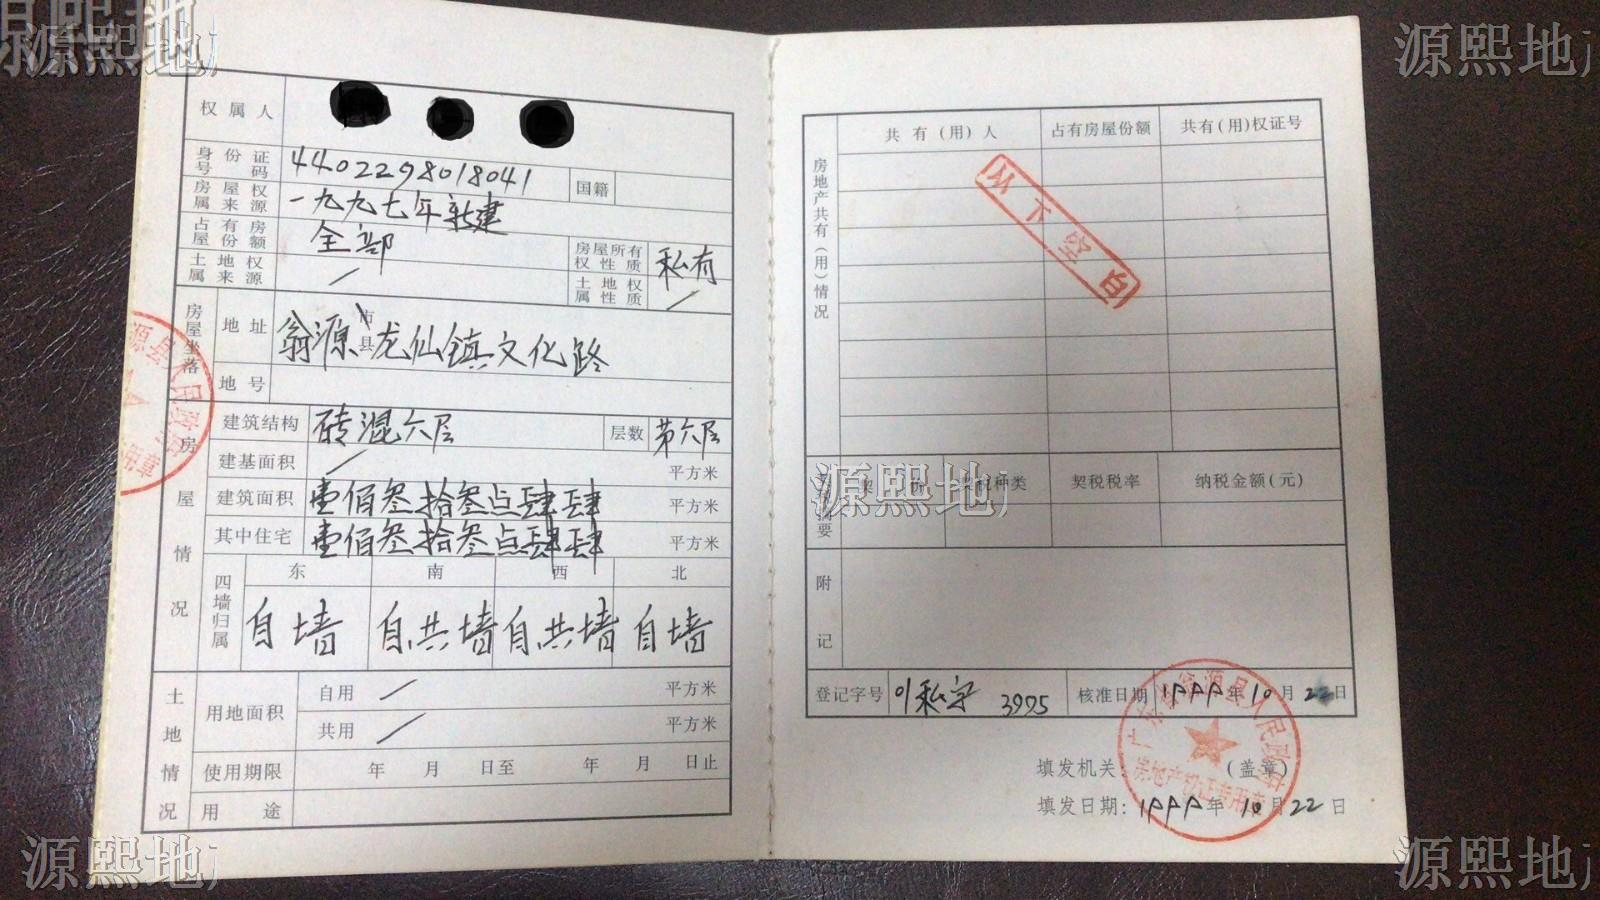 源熙地
源熙地
权属人
身份证号码 4402298018041 国籍
房屋权属来源 一九九七年新建
占有房屋份额 全部 房屋所有权性质 私有
土地权属来源 / 土地权属性质 /
房屋坐落 地址 翁源 市县 龙仙镇文化路
地号
房屋情况
建筑结构 砖混六层 层数 第六层
建基面积 / 平方米
建筑面积 壹佰叁拾叁点肆肆 平方米
其中住宅 壹佰叁拾叁点肆肆 平方米
四墙归属 东 南 西 北
自墙 自共墙 自共墙 自墙
土地情况
用地面积 自用 / 平方米
共用 / 平方米
使用期限 年 月 日至 年 月 日止
用途
房地产共有(用)情况
共有(用)人 占有房屋份额 共有(用)权证号
以下空白
源熙地
契税种类 契税税率 纳税金额(元)
摘要
附记
登记字号 私字 3975 核准日期 1999年10月22日
填发机关: (盖章)
填发日期: 1999年10月22日
广东省翁源县人民政府
房地产权证专用章
源县人民政府
用章
源熙地
源熙地